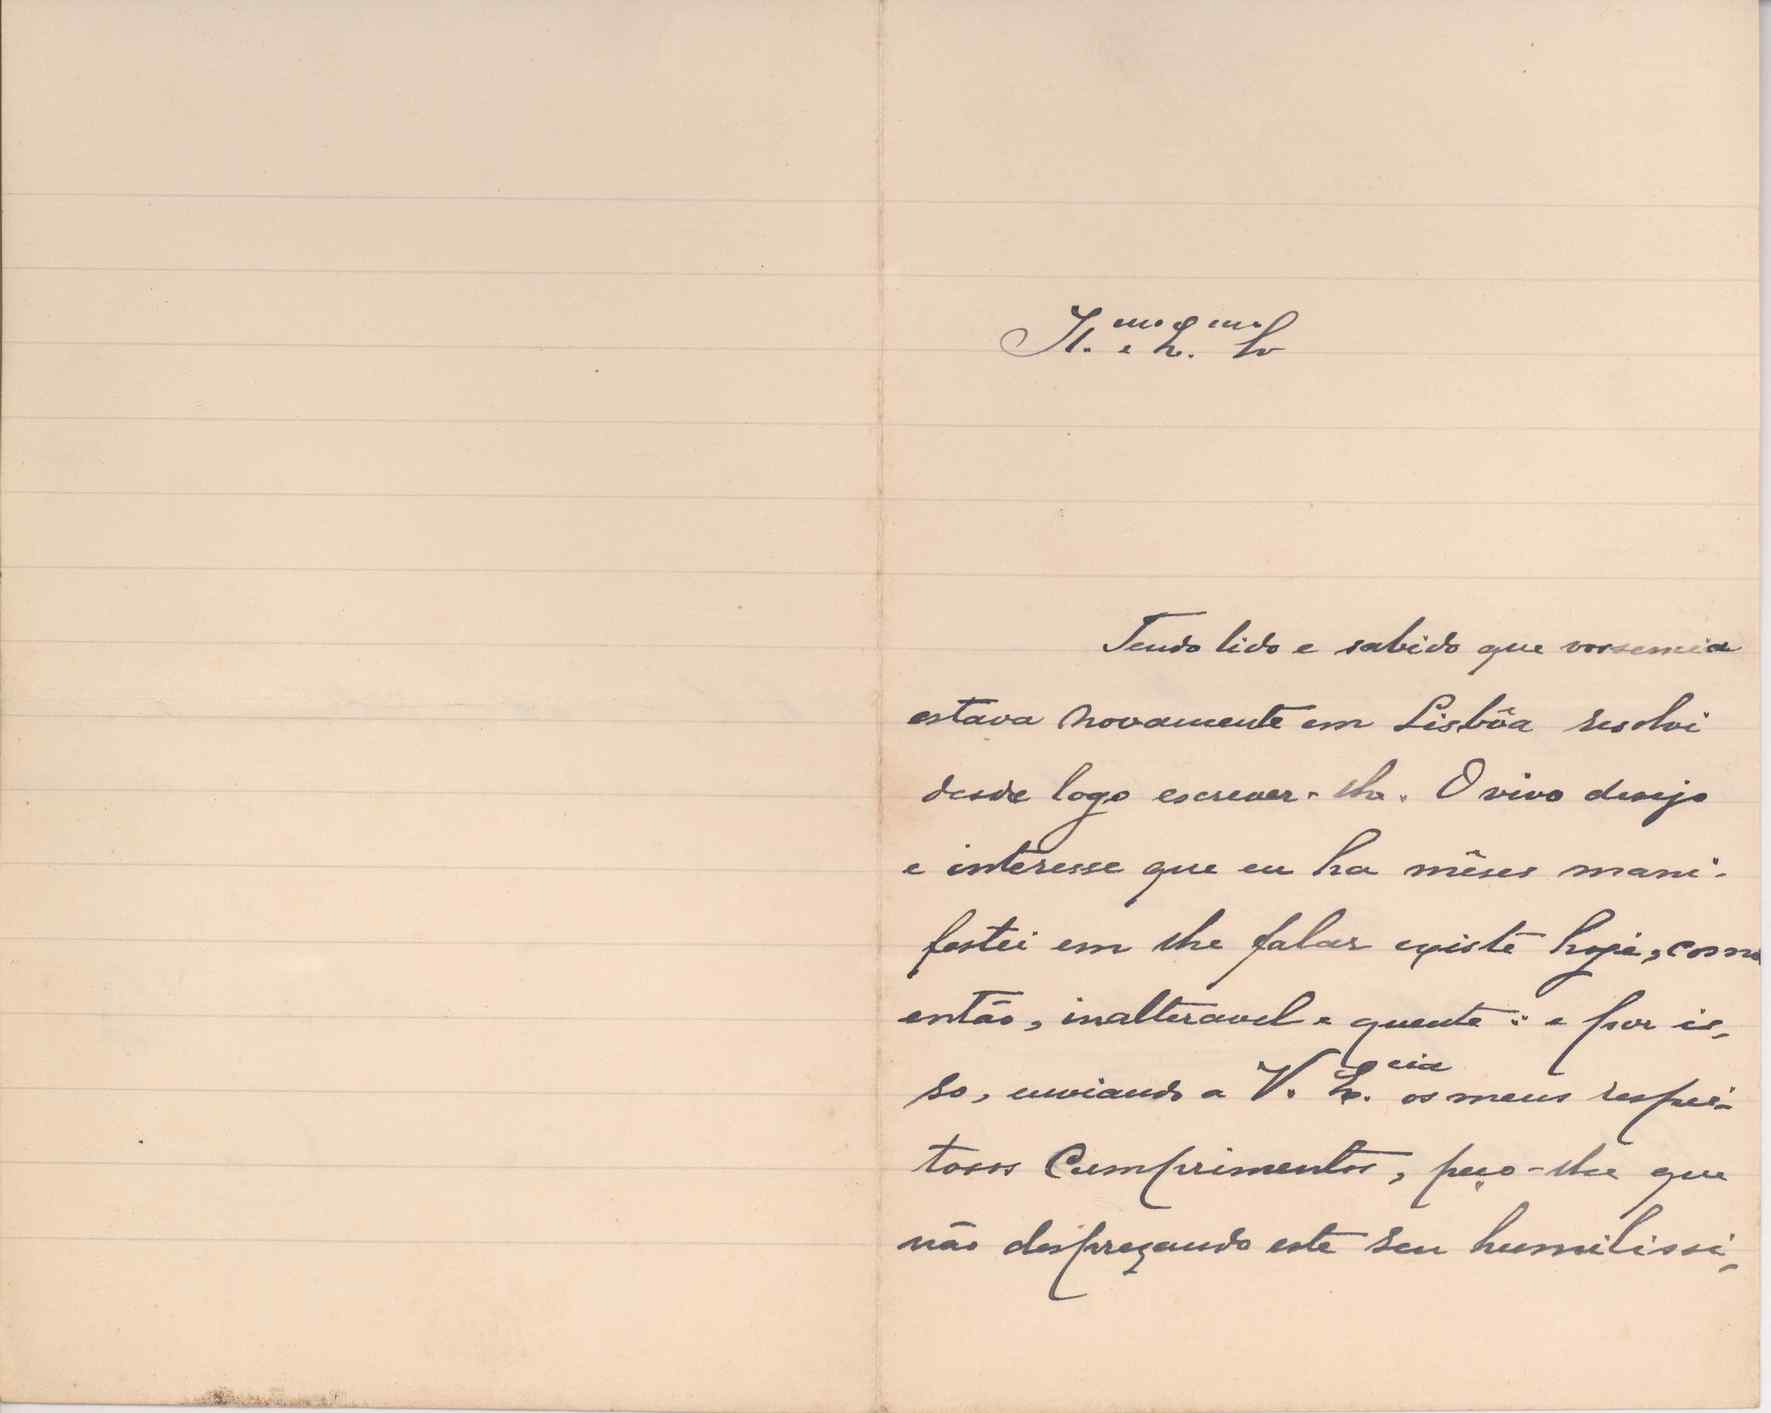 Il.mo e Ex.mo Sr
Tendo lido e sabido que vossemeia
estava novamente em Lisbôa resolvi
desde logo escrever-lhe. O vivo desejo
e interesse que eu ha mêses mani-
festei em lhe falar existe hoje, como
então, inalteravel e quente: e por is-
so, enviando a V. Ex.cia os meus respei-
tosos Cumprimentos, peço-lhe que
não desprezando este seu humilissi-